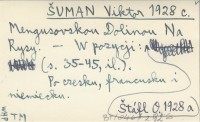 ŠUMAN Viktor 1928 c.
Mengusovskou Dolinou Na
Rysy. — W pozycji:
(s. 35-45, il.).
Po czesku, francusku i
niemiecku.
Štáfl O. 1928 a
TM